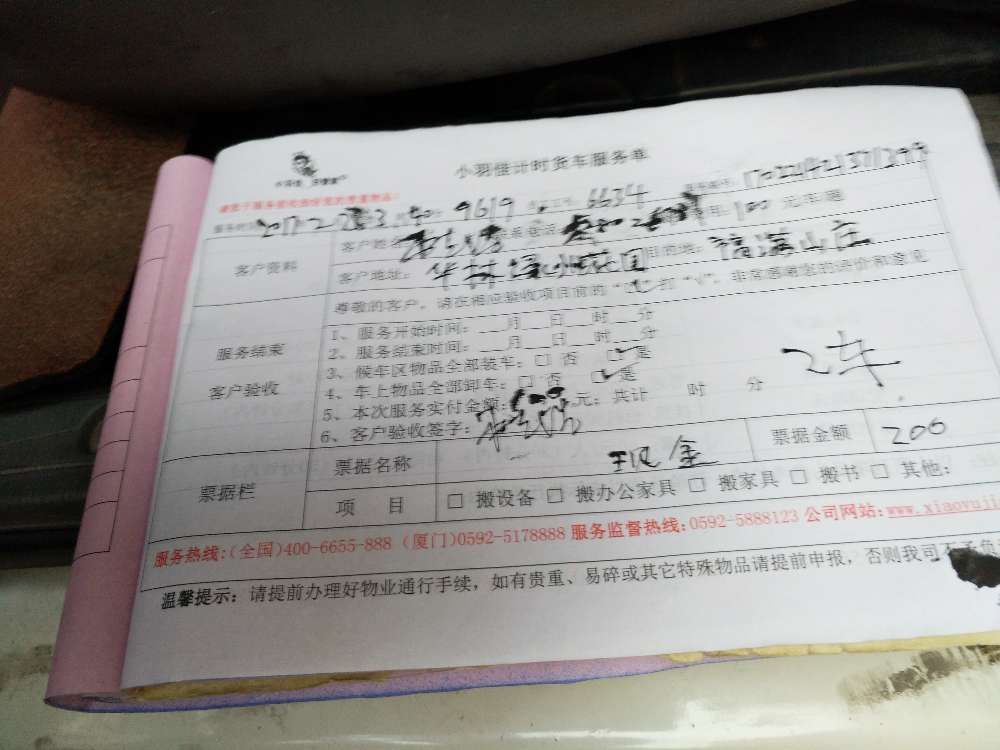 小羽佳计时货车服务单
9619 6634
客户资料 客户姓名
客户地址： 华林 花园 目的地： 福满山庄
100 元/车/趟
尊敬的客户，请在相应验收项目前的"□"打"√"，非常感谢您的评价和意见
服务结束
客户验收
1、服务开始时间：___月___日___时___分
2、服务结束时间：___月___日___时___分
3、候车区物品全部装车：□ 否 □ 是
4、车上物品全部卸车：□ 否 □ 是
5、本次服务实付金额： 元；共计 时 分
6、客户验收签字：
2车
票据栏 票据名称 现金 票据金额 200
项 目 □ 搬设备 □ 搬办公家具 □ 搬家具 □ 搬书 □ 其他：
服务热线：(全国)400-6655-888 (厦门)0592-5178888 服务监督热线：0592-5888123 公司网站：
温馨提示：请提前办理好物业通行手续，如有贵重、易碎或其它特殊物品请提前申报，否则我司不予负